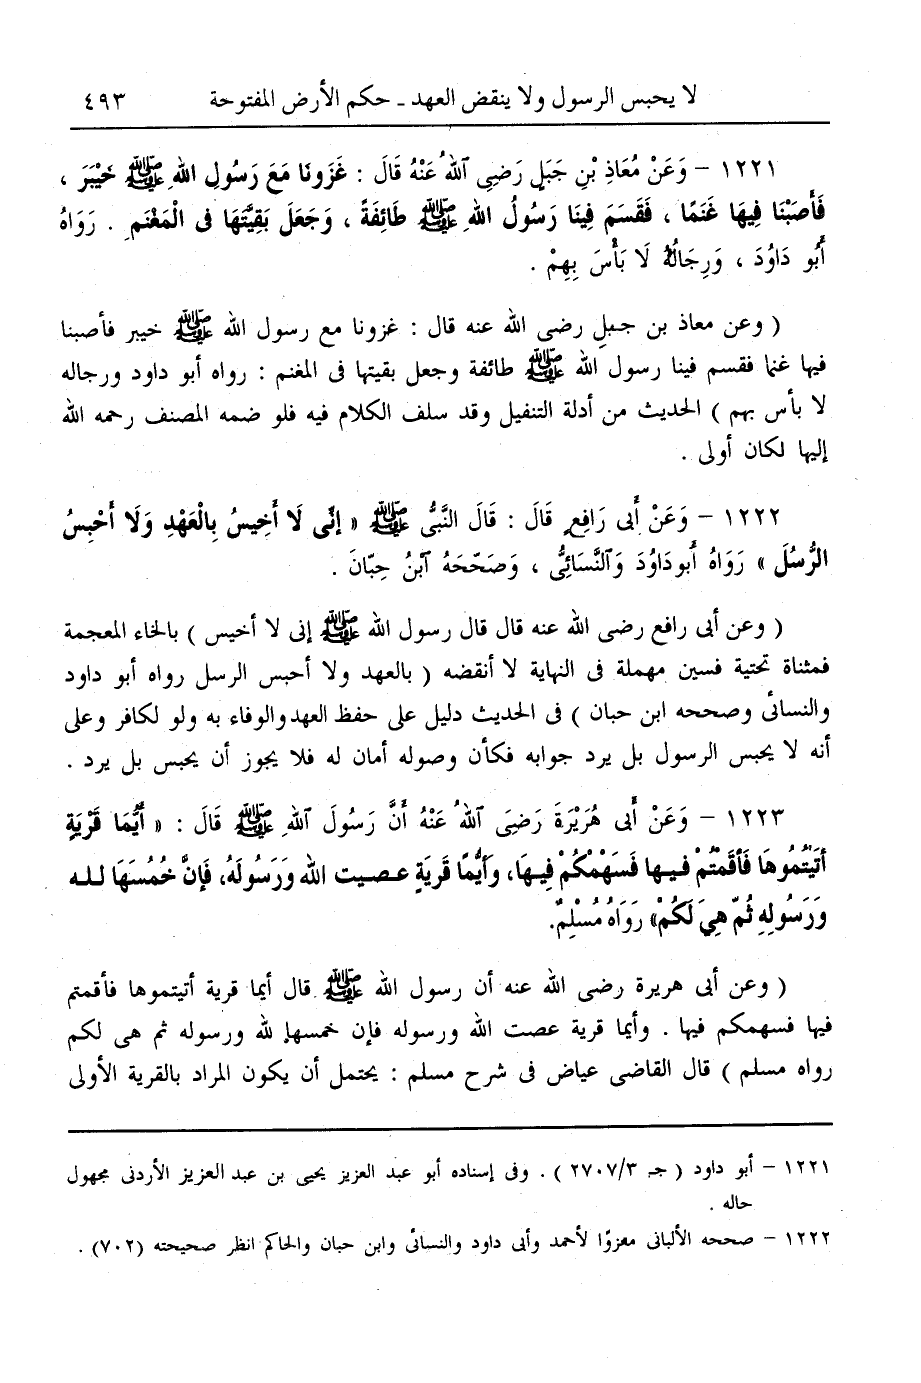 لا يحبس الرسول ولا ينقض العهد ـ حكم الأرض المفتوحة ٤٩٣
١٢٢١ – وَعَنْ مُعَاذِ بْنِ جَبَلٍ رَضِىَ اللهُ عَنْهُ قَالَ : غَزَونَا مَعَ رَسُولِ اللهِ ﷺ خَيْبَرَ ،
فَأَصَبْنَا فِيهَا غَنَمًا ، فَقَسَمَ فِينَا رَسُولُ اللهِ ﷺ طَائِفَةً ، وَجَعَلَ بَقِيَّتَهَا فى الْمَغْنَمِ . رَوَاهُ
أَبُو دَاوُدَ ، وَرِجَالُهُ لَا بَأْسَ بِهِمْ .
( وعن معاذ بن جبلِ رضى الله عنه قال : غزونا مع رسول الله ﷺ خيبر فأصبنا
فيها غنما فقسم فينا رسول الله ﷺ طائفة وجعل بقيتها فى المغنم : رواه أبو داود ورجاله
لا بأس بهم ) الحديث من أدلة التنفيل وقد سلف الكلام فيه فلو ضمه المصنف رحمه الله
إليها لكان أولى .
١٢٢٢ – وَعَنْ أَبى رَافِعٍ قَالَ : قَالَ النَّبىُّ ﷺ « إنَّى لَا أَخِيسُ بِالْعَهْدِ وَلَا أَحْبِسُ
الرُّسُلَ » رَوَاهُ أَبودَاوُدَ وَالنَّسَائىُّ ، وَصَحّحَهُ آبْنُ حِبّانَ .
( وعن أبى رافع رضى الله عنه قال قال رسول الله ﷺ إنى لا أخيس ) بالخاء المعجمة
فمثناة تحتية فسين مهملة فى النهاية لا أنقضه ( بالعهد ولا أحبس الرسل رواه أبو داود
والنسائى وصححه ابن حبان ) فى الحديث دليل على حفظ العهدوالوفاء به ولو لكافر وعلى
أنه لا يحبس الرسول بل يرد جوابه فكأن وصوله أمان له فلا يجوز أن يحبس بل يرد .
١٢٢٣ – وَعَنْ أَبى هُرَيْرَةَ رَضِىَ اللهُ عَنْهُ أَنَّ رَسُولَ اللهِ ﷺ قَالَ : « أَيُّمَا قَرْيَةٍ
أَتَيْتُمُوهَا فَأَقَمْتُمْ فيها فَسَهْمُكُمْ فِيهَا، وَأَيُّمَا قَرْيَةٍ عصيت الله وَرَسُولَهُ، فَإنَّ خُمُسَهَا لله
وَرَسُولِهِ ثُمّ هِيَ لَكُمْ» رَوَاهُ مُسْلِمٌ.
( وعن أبى هريرة رضى الله عنه أن رسول الله ﷺ قال أيما قرية أتيتموها فأقمتم
فيها فسهمكم فيها . وأيما قرية عصت الله ورسوله فإن خمسها لله ورسوله ثم هى لكم
رواه مسلم ) قال القاضى عياض فى شرح مسلم : يحتمل أن يكون المراد بالقرية الأولى
١٢٢١ – أبو داود ( جـ ٢٧٠٧/٣ ) . وفى إسناده أبو عبد العزيز يحيى بن عبد العزيز الأردنى مجهول
حاله .
١٢٢٢ – صححه الألبانى معزوًا لأحمد وأبى داود والنسائى وابن حبان والحاكم انظر صحيحته (٧٠٢) .